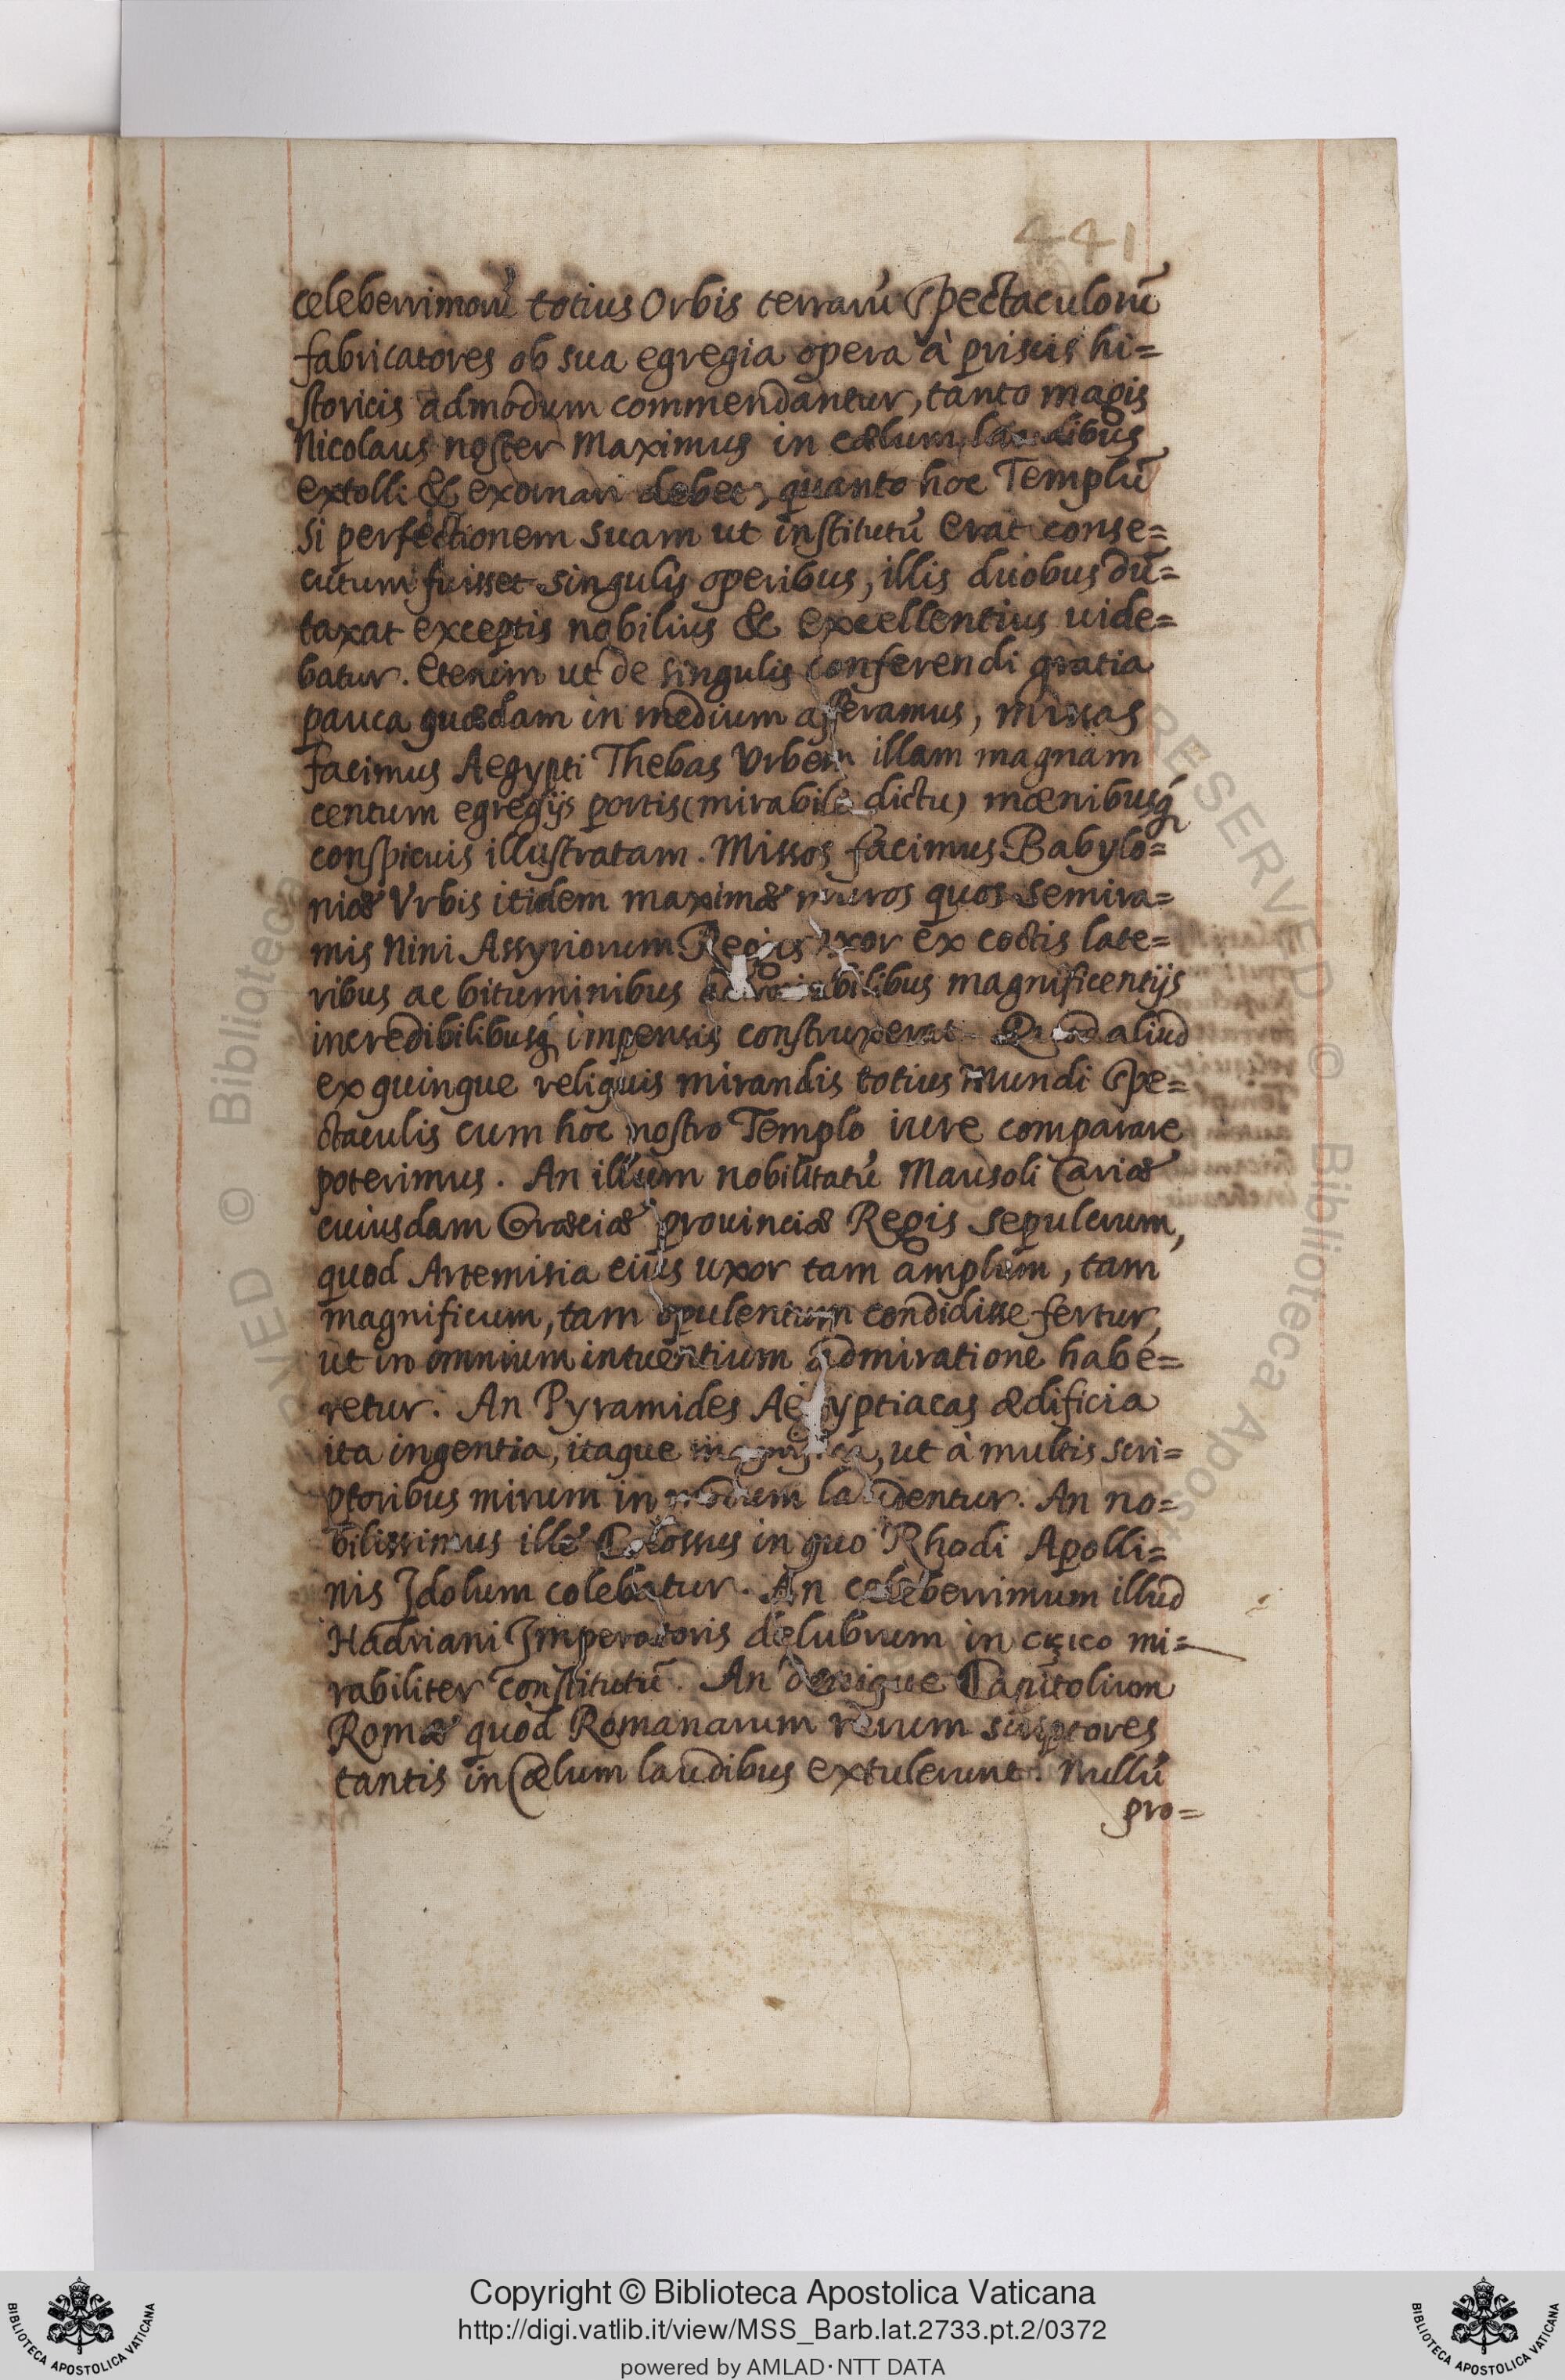 441
celeberrimorū totius Orbis terrarū spectaculorū
fabricatores ob sua egregia opera à priscis hi=
storicis admodum commendantur, tanto magis
Nicolaus noster Maximus in cælum laudibus
extolli & exornari debet, quanto hoc Templū
si perfectionem suam ut institutū erat conse=
cutum fuisset singulis operibus, illis duobus dū=
taxat exceptis nobilius & excellentius uide=
batur. Etenim ut de singulis conferendi gratia
pauca quædam in medium afferamus, missas
facimus Aegypti Thebas Vrbem illam magnam
centum egregijs portis (mirabile dictu) mœnibusq́
conspicuis illustratam. Missos facimus Babylo=
niæ Vrbis itidem maximæ muros quos Semira=
mis Nini Assyriorum Regis uxor ex coctis late=
ribus ac bituminibus admirabilibus magnificentijs
incredibilibusq́ impensis construxerat. Quod aliud
ex quinque reliquis mirandis totius Mundi spe=
ctaculis cum hoc nostro Templo iure comparare
poterimus. An illum nobilitatū Mausoli Cariæ
cuiusdam Græciæ prouinciæ Regis sepulcrum,
quod Artemisia eius uxor tam amplum, tam
magnificum, tam opulentum condidisse fertur,
ut in omnium intuentium admiratione habe=
retur. An Pyramides Aegyptiacas ædificia
ita ingentia, itaque magnifica, ut à multis scri=
ptoribus mirum in modum laudentur. An no=
bilissimus ille Colossus in quo Rhodi Apolli=
nis Idolum colebatur. An celeberrimum illud
Hadriani Imperatoris delubrum in mi=
rabiliter constitutū. An denique Capitolium
Romæ quod Romanarum rerum scriptores
tantis in Cælum laudibus extulerunt. Nullū
pro=
Copyright © Biblioteca Apostolica Vaticana
http://digi.vatlib.it/view/MSS_Barb.lat.2733.pt.2/0372
powered by AMLAD·NTT DATA
BIBLIOTECA APOSTOLICA VATICANA
BIBLIOTECA APOSTOLICA VATICANA